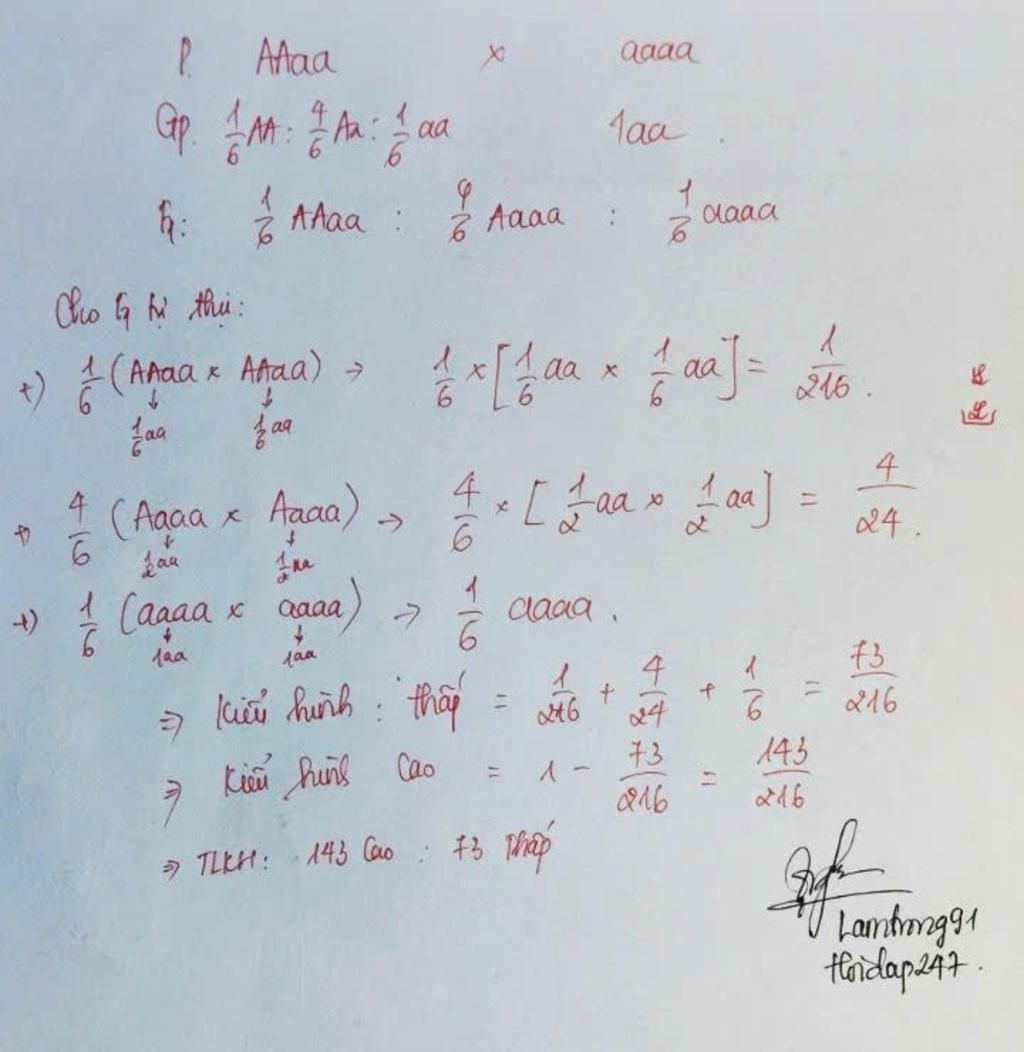 P. AAaa × aaaa
Gp. 1/6 AA : 4/6 Aa : 1/6 aa 1aa.
F1: 1/6 AAaa : 4/6 Aaaa : 1/6 aaaa
Cho F1 tự thụ:
+) 1/6 (AAaa × AAaa) → 1/6 × [1/6 aa × 1/6 aa] = 1/216.
↓ ↓
1/6 aa 1/6 aa
+) 4/6 (Aaaa × Aaaa) → 4/6 × [1/2 aa × 1/2 aa] = 4/24.
↓ ↓
1/2 aa 1/2 aa
+) 1/6 (aaaa × aaaa) → 1/6 aaaa.
↓ ↓
1aa 1aa
⇒ Kiểu hình : thấp = 1/216 + 4/24 + 1/6 = 73/216
⇒ Kiểu hình Cao = 1 - 73/216 = 143/216
⇒ TLKH: 143 Cao : 73 Thấp
Lamtrong91
Hoidap247.